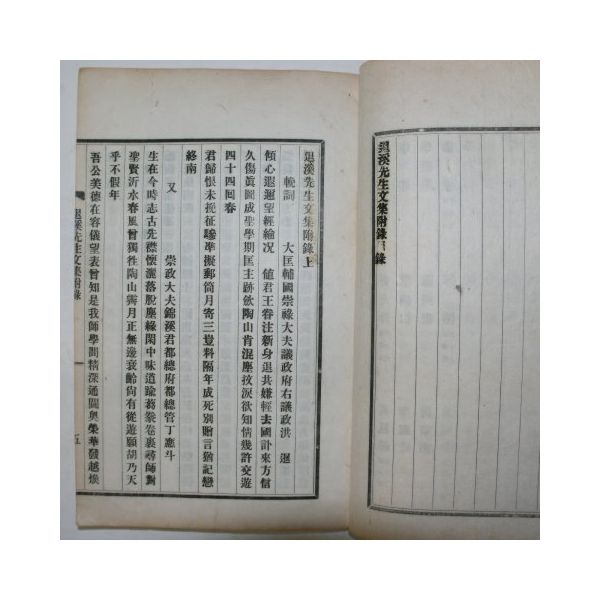 退溪先生文集附錄目錄
退溪先生文集附錄上
輓詞 大匡輔國崇祿大夫議政府右議政洪 暹
傾心遐邇望經綸况値君王眷注新身退共嫌輕去國訃來方信
久傷眞圖成聖學期匡主跡歛陶山肯混塵抆淚欲知情幾許交遊
四十四回春
君歸恨未挽征驂準擬郵筒月寄三豈料隔年成死別贈言猶記戀
終南
又 崇政大夫錦溪君都總府都總管丁應斗
生在今時志古先襟懷灑落脫塵緣閑中味道踰蒭豢卷裏尋師對
聖賢沂水春風曾獨往陶山霽月正無邊衰齡尙有從遊願胡乃天
乎不假年
吾公美德在容儀望表曾知是我師學問精深通閫奧榮華發越
退溪先生文集附錄 一 五